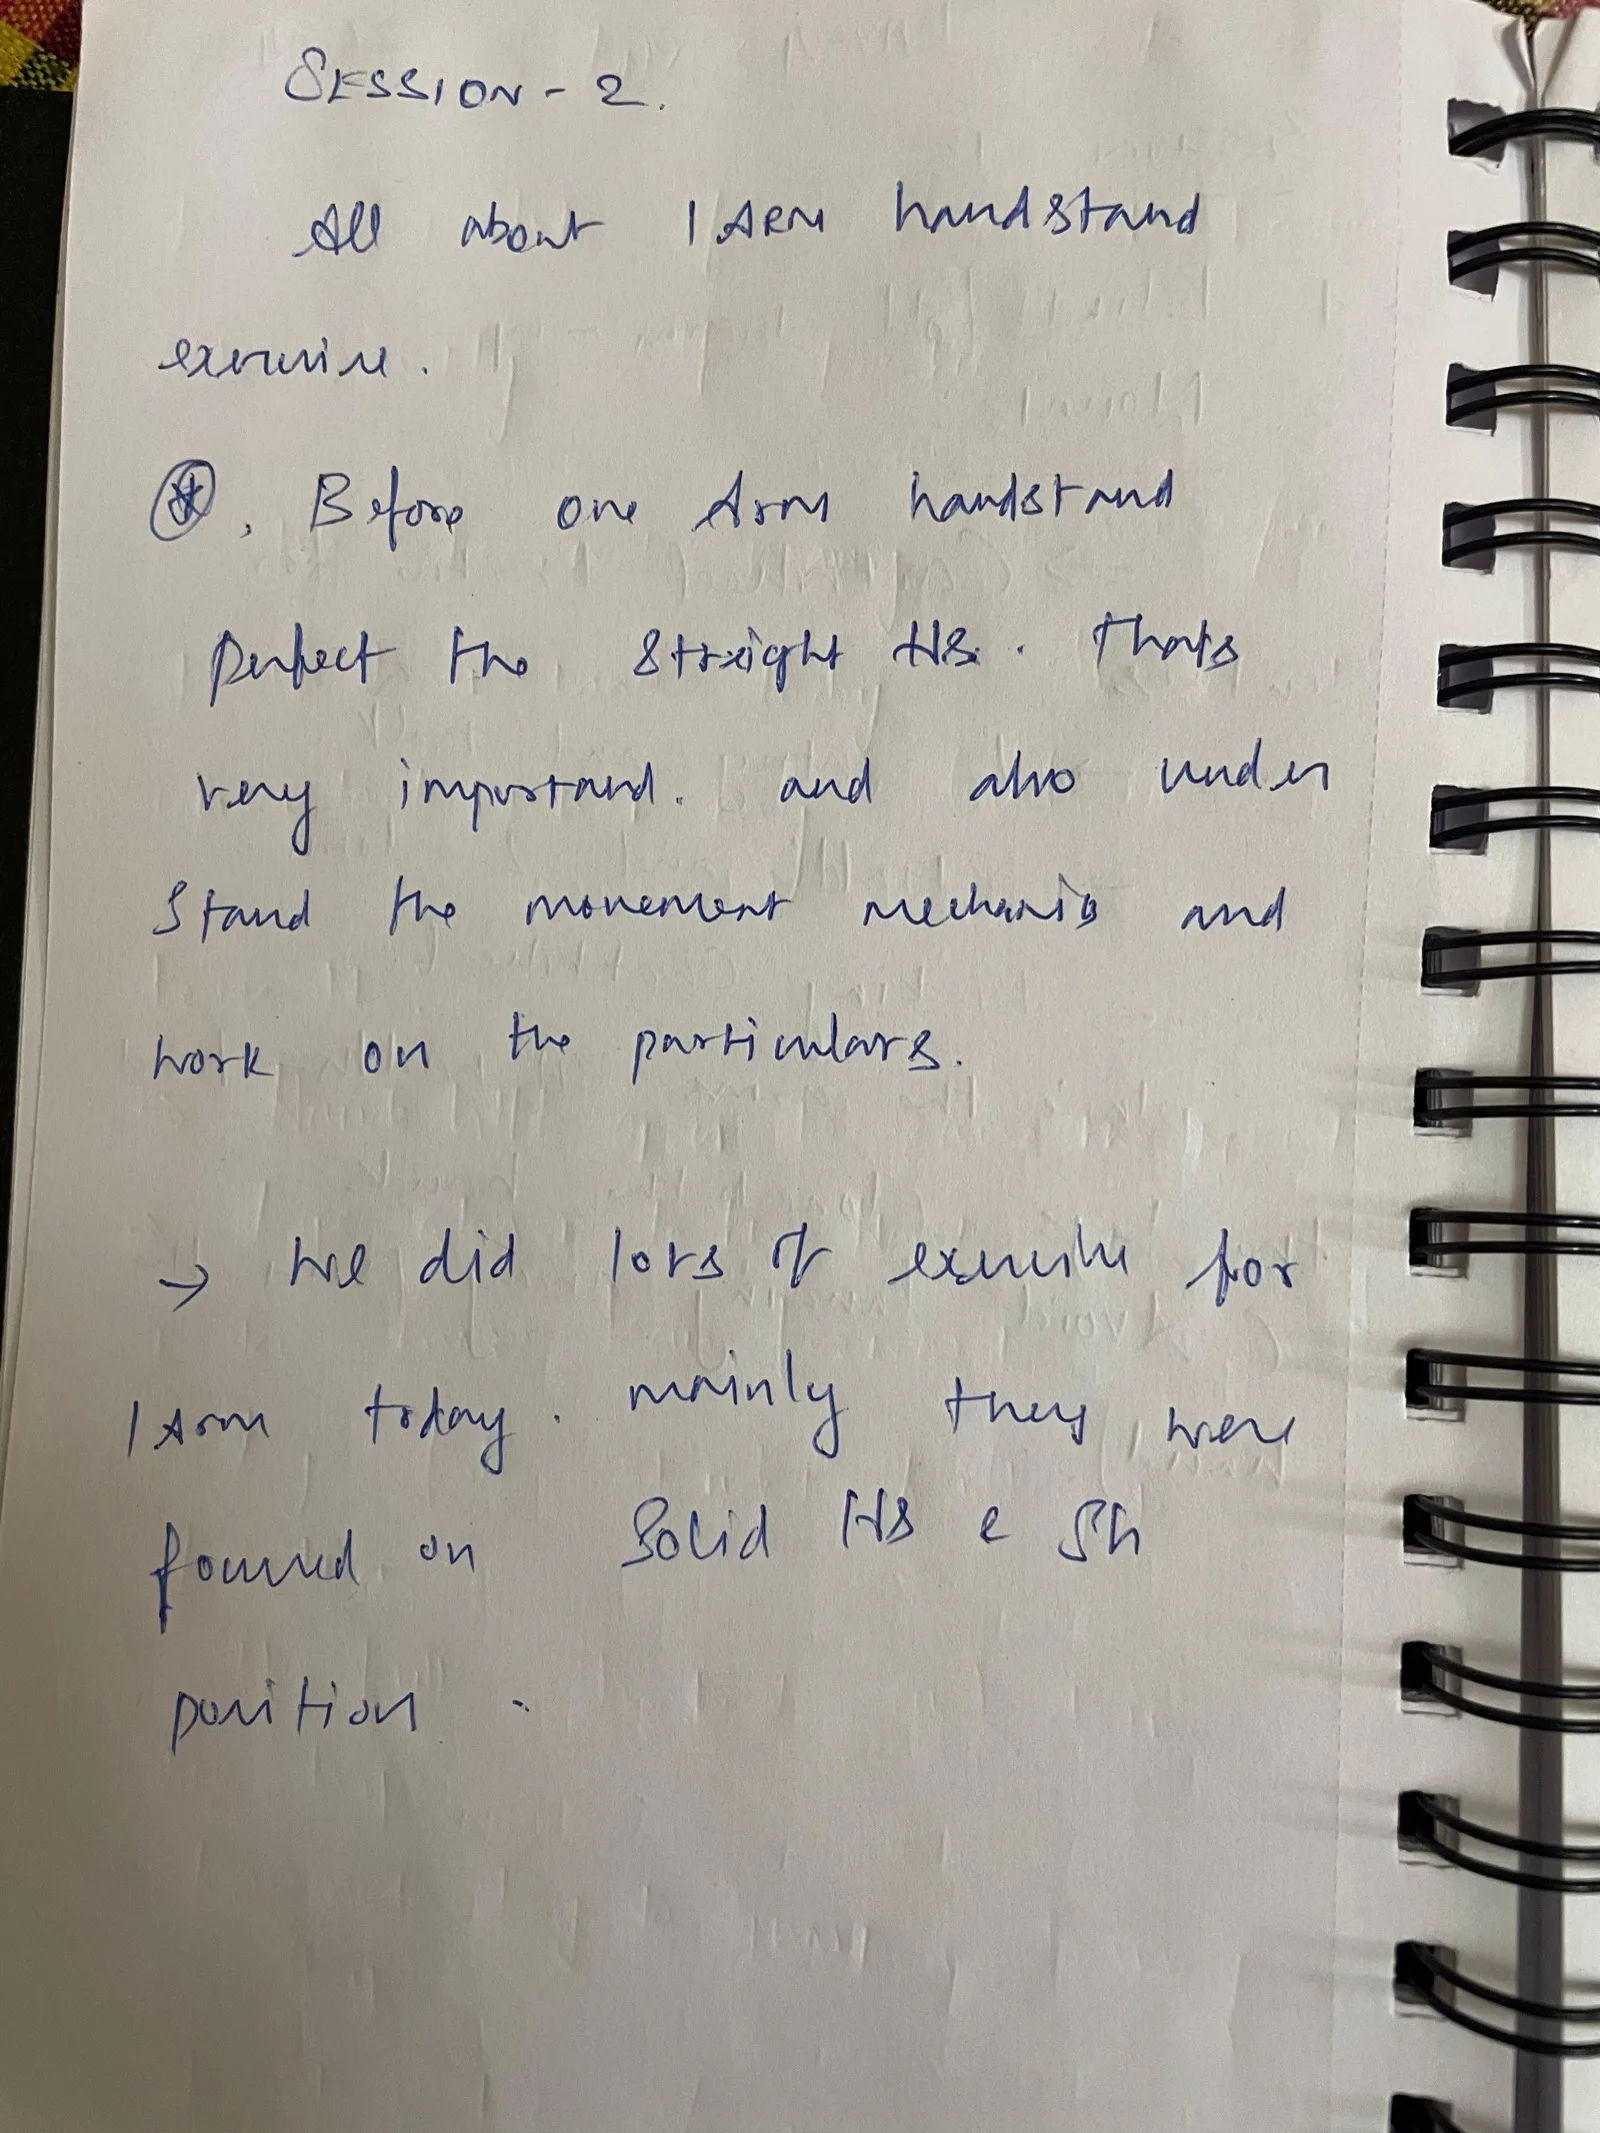 SESSION - 2.
All about 1 ARM handstand
exercise.
⊛, Before one Arm handstand
Perfect the straight HS. Thats
very importand. and also under
stand the movement mechanis and
work on the particulars.
→ We did lots of exercise for
1 Arm today. mainly they were
focused on Solid HS & Sh
position.